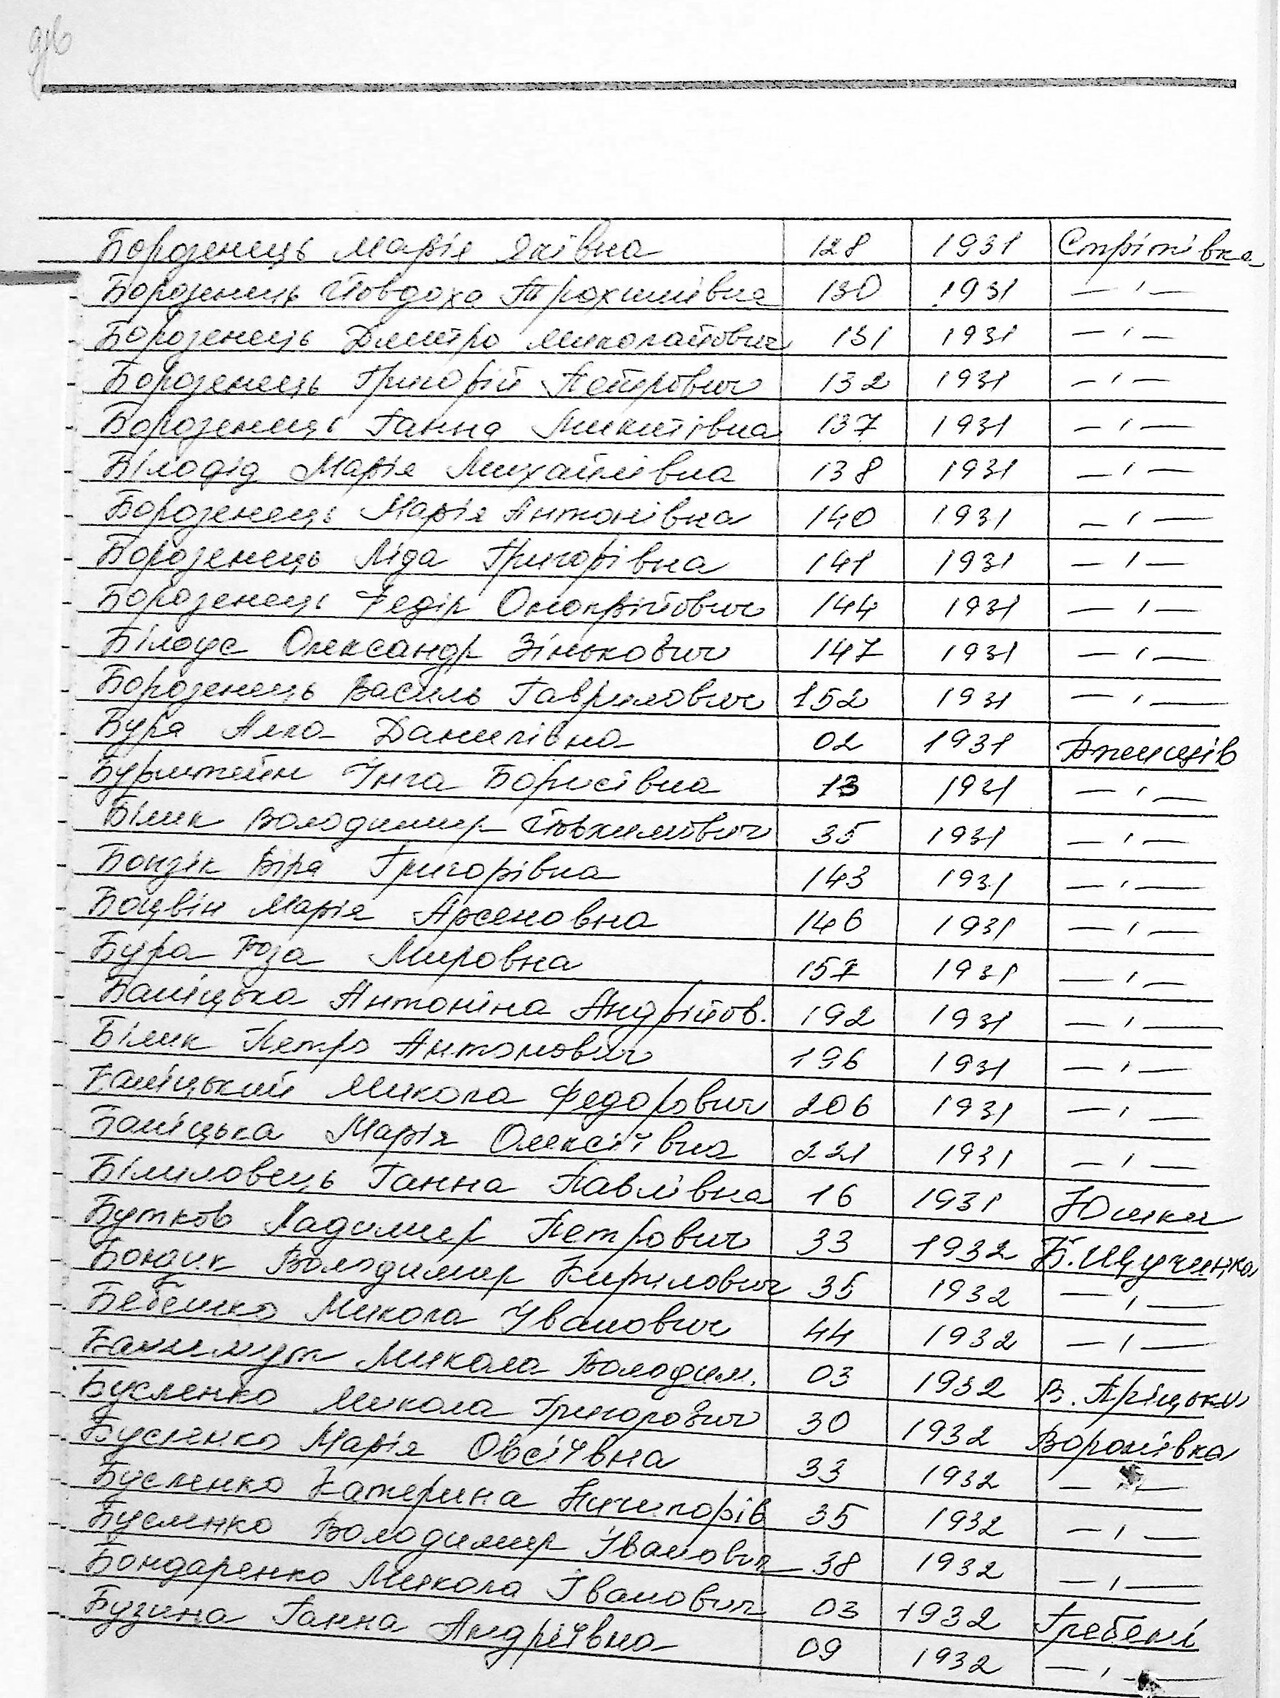 Борозенець Марія Яківна 128 1931 Стрітівка
Борозенець Йовдоха Трохимівна 130 1931 — " —
Борозенець Дмитро Миколайович 131 1931 — " —
Борозенець Григорій Петрович 132 1931 — " —
Борозенець Ганна Микитівна 137 1931 — " —
Білодід Марія Михайлівна 138 1931 — " —
Борозенець Марія Антонівна 140 1931 — " —
Борозенець Ліда Григорівна 141 1931 — " —
Борозенець Федір Онопрійович 144 1931 — " —
Білоус Олександр Зінькович 147 1931 — " —
Борозенець Василь Гаврилович 152 1931 — " —
Бура Алла Данилівна 02 1931
Бурштейн Інга Борисівна 13 1931 — " —
Білик Володимир Йовхимович 35 1931 — " —
Бонзік Віра Григорівна 143 1931 — " —
Боцвін Марія Арсеновна 146 1931 — " —
Бура Роза Мировна 157 1931 — " —
Баліцька Антоніна Андрійов. 192 1931 — " —
Білик Петро Антонович 196 1931 — " —
Баліцький Микола Федорович 206 1931 — " —
Баліцька Марія Олексіївна 221 1931 — " —
Білиловець Ганна Павлівна 16 1931 Юшки
Бутков Ладимир Петрович 33 1932 Б. Щучинка
Бондик Володимир Кирилович 35 1932 — " —
Бебешко Микола Іванович 44 1932 — " —
Микола Володим. 03 1932 В. Пріцьки
Бусленко Микола Григорович 30 1932 Воронівка
Бусленко Марія Овсіївна 33 1932 — " —
Бусленко Катерина Ничипорів 35 1932 — " —
Бусленко Володимир Іванович 38 1932 — " —
Бондаренко Микола Іванович 03 1932 Гребені
Бузина Ганна Андріївна 09 1932 — " —